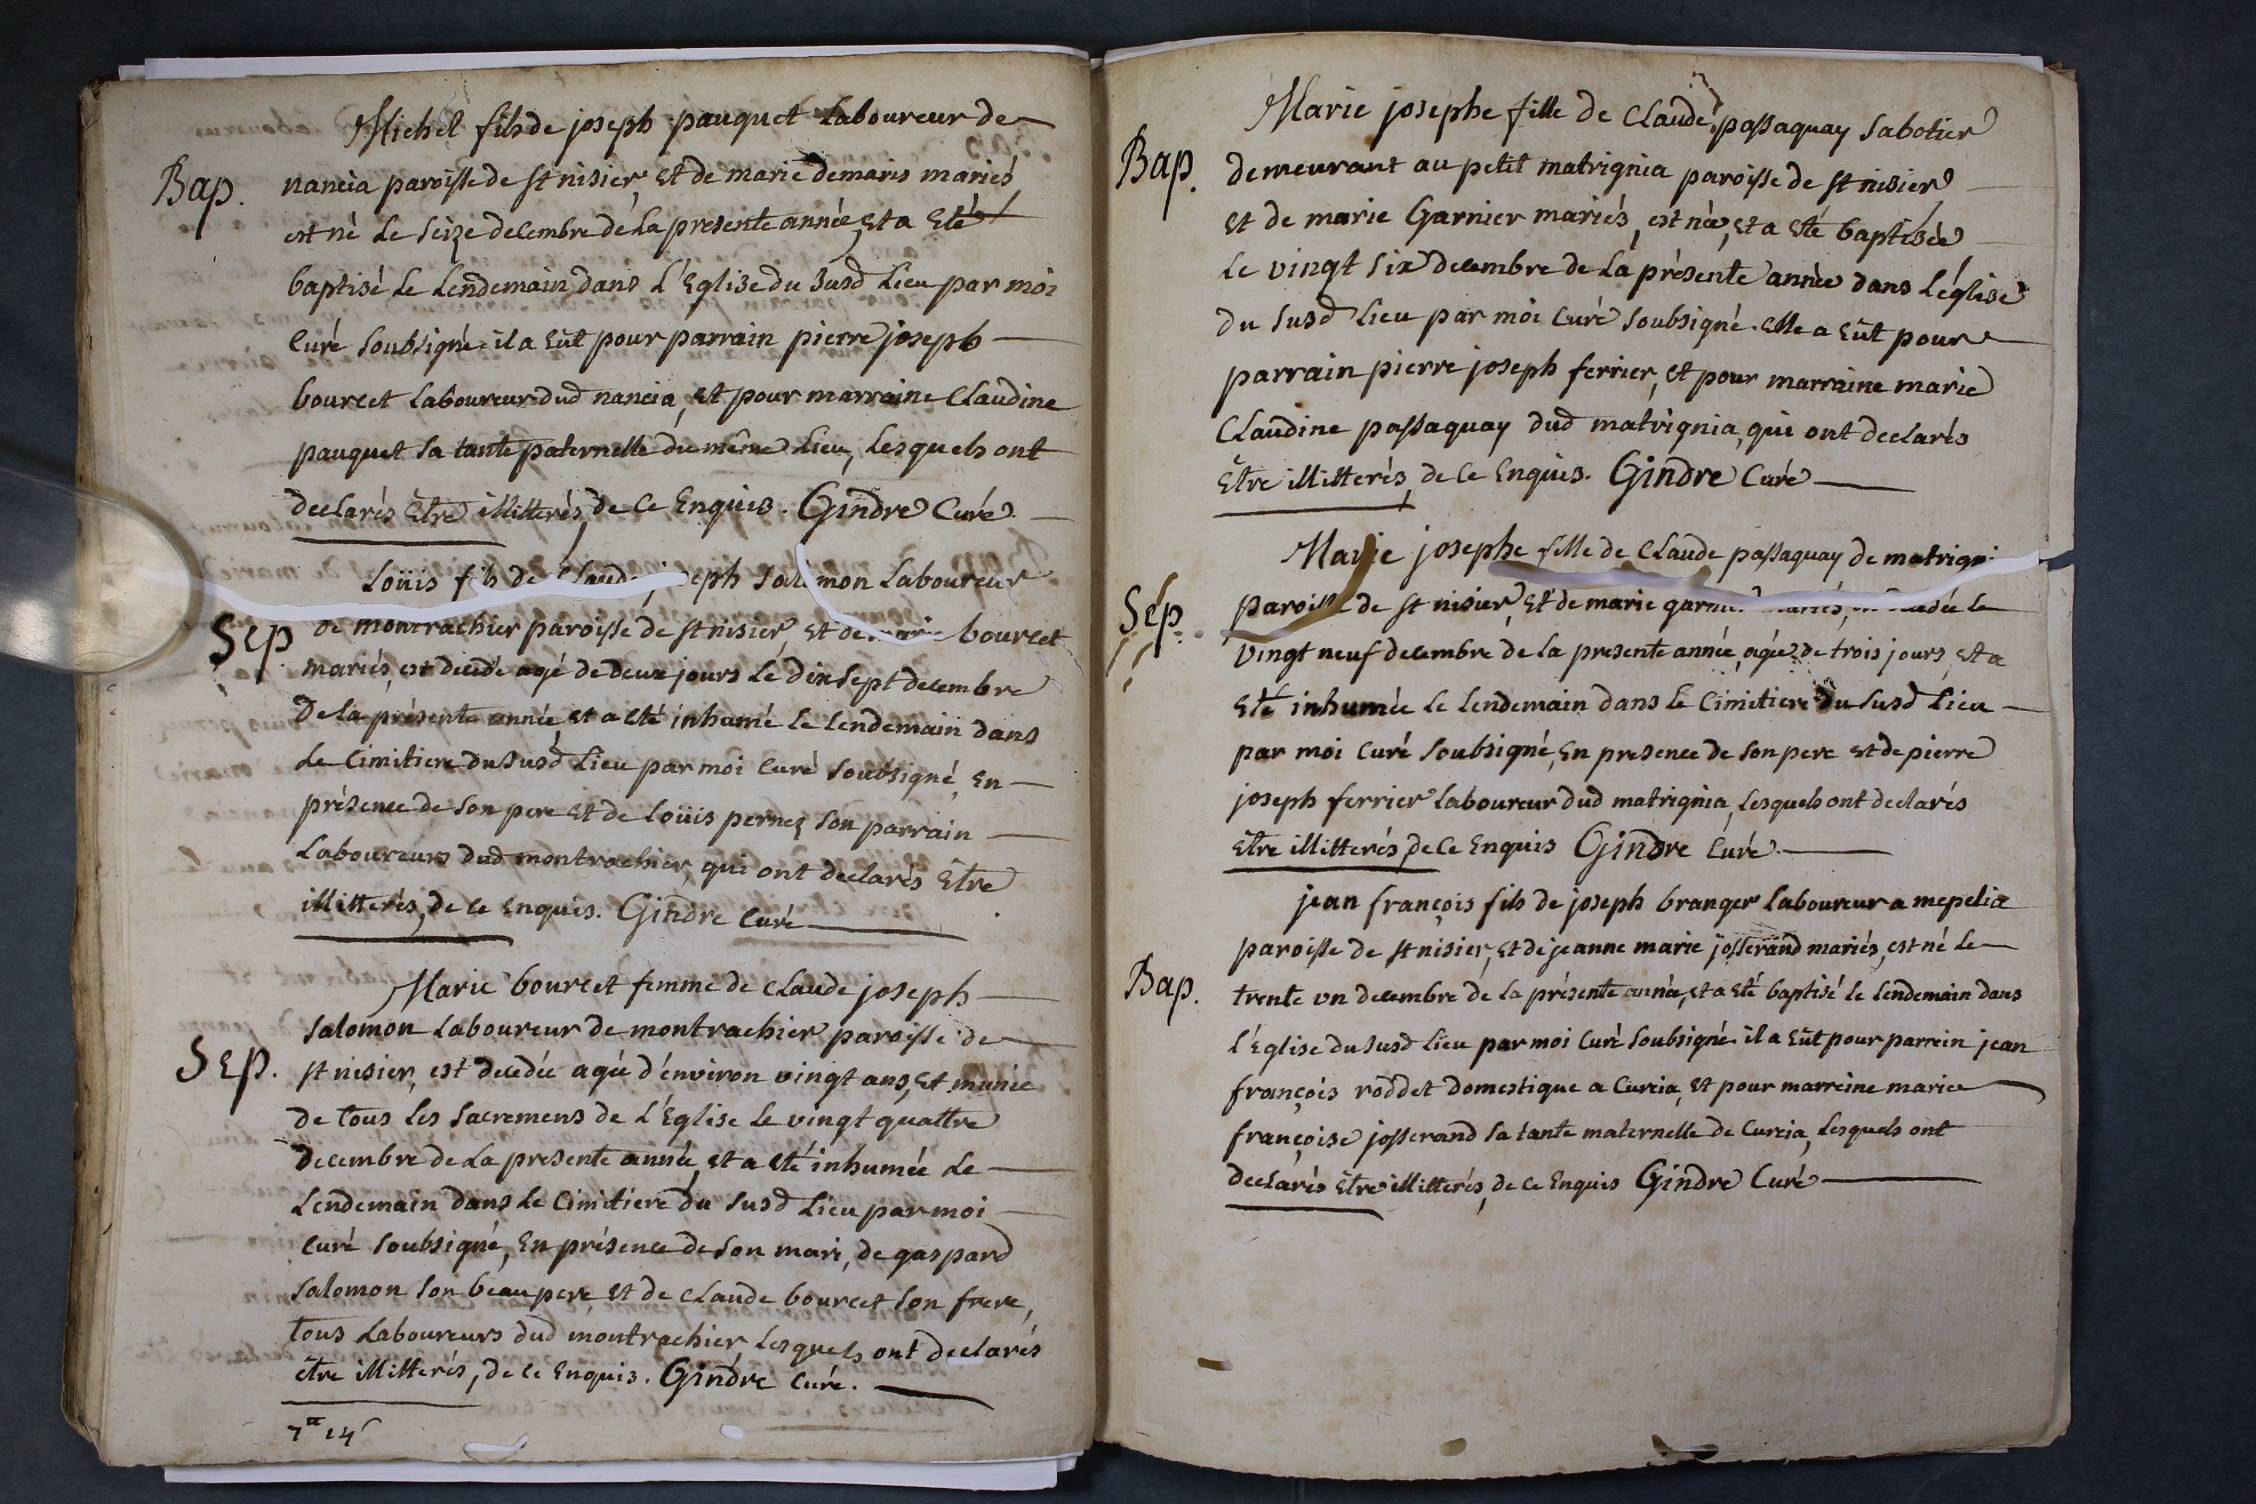 Michel fils de joseph pauquet Laboureur de
Bap. nancia paroisse de st nisier, et de marie demaris mariés,
est né Le seize decembre de La presente année, et a eté
baptisé Le Lendemain dans L'Eglise du susd Lieu par moi
Curé soubsigné. il a eût pour parrain pierre joseph
bourcet Laboureur dud nancia, et pour marraine Claudine
pauquet sa tante paternelle du même Lieu, Lesquels ont
declarés être illitterés, de ce enquis. Gindre Curé
Loüis fils de Claude joseph salomon Laboureur
Sep de montrachier paroisse de st nisier, et de marie bourcet
mariés, est decedé agé de deux jours Le dix sept decembre
De la présente année, et a eté inhumé le lendemain dans
Le Cimitiere du susd Lieu par moi Curé soubsigné, en
présence de son pere et de Loüis pernez son parrain
Laboureurs dud montrachier, qui ont declarés être
illitterés, de ce enquis. Gindre Curé
Marie bourcet femme de claude joseph
salomon Laboureur de montrachier paroisse de
Sep. st nisier, est decedée agée d'environ vingt ans, et munie
de tous les sacremens de L'Eglise Le vingt quattre
decembre de La presente année, et a eté inhumée Le
Lendemain dans Le Cimitiere du susd Lieu par moi
Curé soubsigné, en présence de son mari, de gaspard
salomon son beau pere, et de claude bourcet son frere,
tous Laboureurs dud montrachier, Lesquels ont declarés
être illitterés, de ce enquis. Gindre Curé.
Marie josephe fille de Claude passaquay sabotier
Bap. demeurant au petit matrignia paroisse de st nisier
et de marie Garnier mariés, est née, et a eté baptisée
Le vingt six decembre de La présente année dans L'église
du susd Lieu par moi Curé soubsigné. elle a eût pour
parrain pierre joseph ferrier, et pour marraine marie
Claudine passaquay dud matrignia, qui ont declarés
être illitterés, de ce enquis. Gindre Curé
Marie josephe fille de Claude passaquay de matrigni
Sép. paroisse de st nisier, et de marie garnier mariés, decedée le
vingt neuf decembre de la presente année, agée de trois jours, et a
eté inhumée le lendemain dans le Cimitiere du susd Lieu
par moi Curé soubsigné, en presence de son pere et de pierre
joseph ferrier laboureur dud matrignia, lesquels ont declarés
être illitterés, de ce enquis Gindre Curé.
jean françois fils de joseph branger laboureur a mepelia
paroisse de st nisier, et de jeanne marie josserand mariés, est né le
Bap. trente un decembre de la présente année, et a eté baptisé le lendemain dans
l'Eglise du susd Lieu par moi Curé soubsigné. il a eût pour parrein jean
françois roddet domestique a Curcia, et pour marreine marie
françoise josserand sa tante maternelle de Curcia, lesquels ont
declarés être illitterés, de ce enquis Gindre Curé